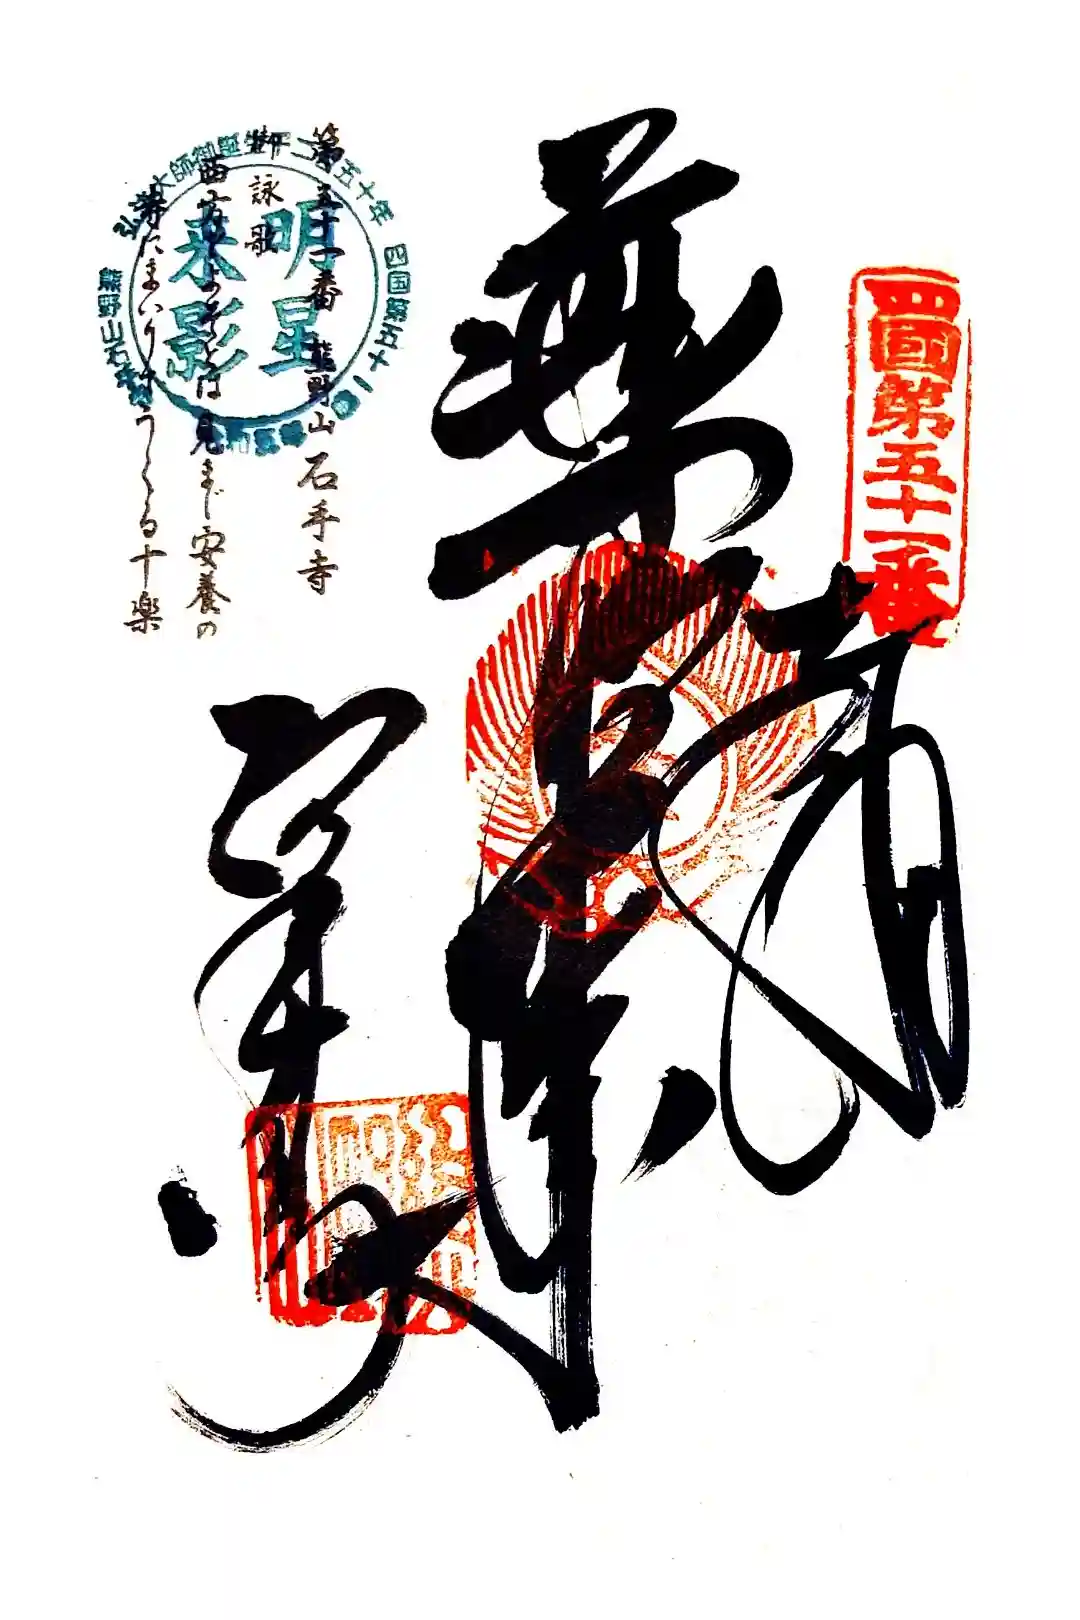 四國第五十一番
奉納
薬師如来
石手寺
第五十一番 熊野山石手寺
詠歌
西方をよそとは見まじ安養の
寺にまいりてうくる十楽
明星
来影
四国第五十一番
熊野山石手寺